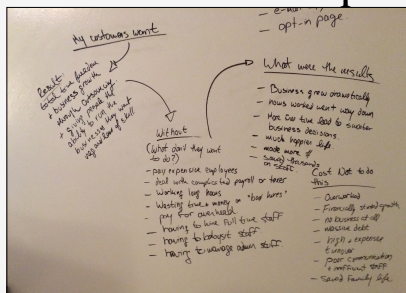 - e-mail
- opt-in page.
My customers want
Result
total time freedom
+ business growth
through outsourcing
+ giving people the
ability to run the
business they want
regardless of skill
Without
(What don't they want
to do?)
- pay expensive employees
- deal with complicated payroll or taxes
- Working long hours
- Wasting time + money on "bad hires"
- pay for overhead
- having to hire full time staff
- having to babysit staff
- having to manage admin staff
What were the results
- Business grew dramatically
- hours worked went way down
- More free time lead to smarter
business decisions
- much happier life
- made more $
- saved thousands
on staff
Cost Not to do
this
- Overworked
- Financially stunted growth
- no business at all
- massive debt
- high + expensive
turnover
- poor communication
+ inefficient staff
- Saved family life